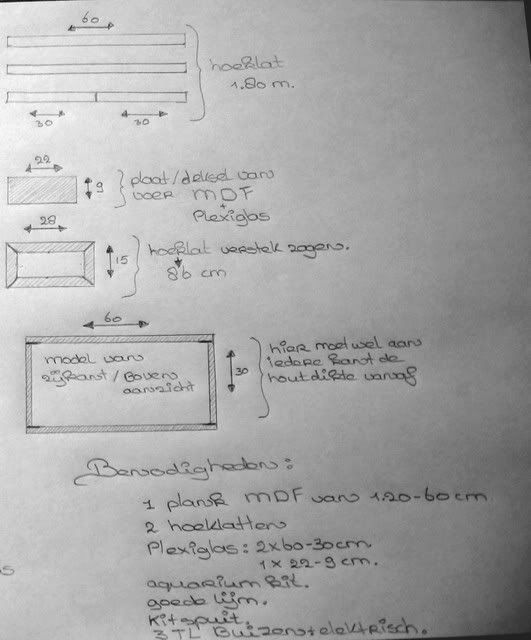 60
hoeklat
1.80 m.
30
30
22
9
plaat/deksel van
voer MDF
+
Plexiglas
28
15
hoeklat verstek zagen.
86 cm
60
30
model van
zijkant / Boven
aanzicht
hier moet wel aan
iedere kant de
houtdikte vanaf
Benodigheden:
1 plank MDF van 1.20-60 cm
2 hoeklatten
Plexiglas: 2x60-30cm.
1x22-9 cm.
aquarium kit.
goede lijm.
Kitspuit.
3 TL Buizen + elektrisch.